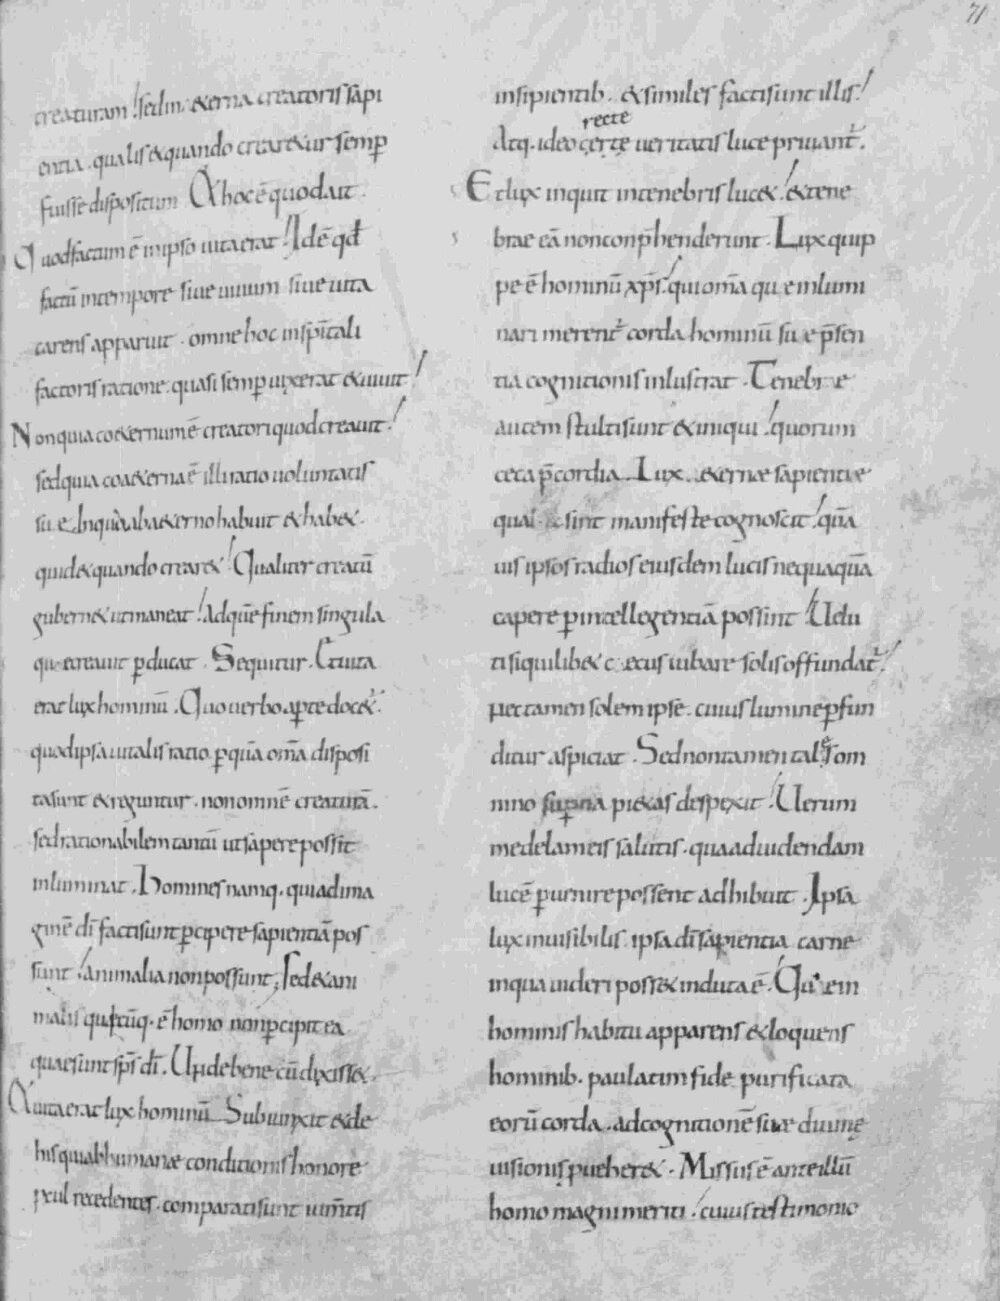 71
creaturam! sed in &erna creatoris sapi
entia. qualis & quando crear&ur semp̄
fuisse dispositum Et hoc ē quod ait.
Quod factum ē in ipso uita erat! Id ē qđ
factū in tempore siue uiuum siue uita
carens apparuit. omne hoc in spītali
factoris ratione. quasi semp̄ uixerat & uiuit!
Non quia co&ernum ē creatori quod creauit!
sed quia coa&erna ē illi ratio uoluntatis
suę. In quo ab a&erno habuit & hab&.
quid & quando crear&! Qualiter creatū
gubern& ut maneat! Ad quē finem singula
quę creauit p̄ducat. Sequitur. Et uita
erat lux hominū. Quo uerbo ap̄te doc&ur.
quod ipsa uitalis ratio p̄ quā om̄a disposi
ta sunt & reguntur. non omnē creaturā.
sed rationabilem tantū ut sapere possit
inluminat. Homines namq. qui ad ima
ginē dī facti sunt p̄cipere sapientiā pos
sunt! animalia non possunt; Sed & ani
malis quicūq. ē homo non p̄cipit ea
quae sunt sp̄s dī. Unde bene cū dixiss&.
Et uita erat lux hominū. Subiunxit & de
his qui ab humanae conditionis honore
p̄cul recedentes. comparati sunt ium̄tis
insipientib. & similes facti sunt illis!
recte
Atq. ideo certe ueritatis luce priuant̄.
Et lux inquit in tenebris luc&! & tene
brae eā non conp̄henderunt. Lux quip
pe ē hominū xp̄s! qui om̄a quę inlumi
nari merent̄ corda hominū suę p̄sen
tia cognitionis inlustrat. Tenebrae
autem stulti sunt & iniqui! quorum
ceca p̄cordia Lux &ernae sapientiae
qualia sint manifeste cognoscit! quā
uis ipsos radios eiusdem lucis nequaquā
capere p̄ intellegentiā possint! Uelu
ti si quilib& cęcus iubare solis offundat̄!
nec tamen solem ipse. cuius lumine p̄fun
ditur aspiciat. Sed non tamen tales om
nino sup̄na pi&as despexit! Uerum
medelam eis salutis. qua ad uidendam
lucē p̄uenire possent adhibuit. Ipsa
lux inuisibilis. ipsa dī sapientia carne
in qua uideri poss& induta ē. Quę in
hominis habitu apparens & loquens
hominib. paulatim fide purificata
eorū corda. ad cognitionē suae diuinę
uisionis proueher&. Missus ē ante illū
homo magni meriti! cuius testimonio